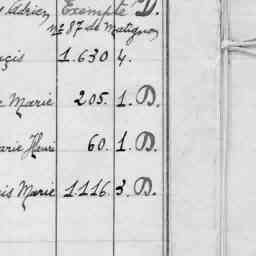 Adrien Exempté D.
nº 87 de Matignon
çis 1.630 4.
e Marie 205. 1. D.
arie Henri 60. 1. D.
is Marie 1.116. 3. D.